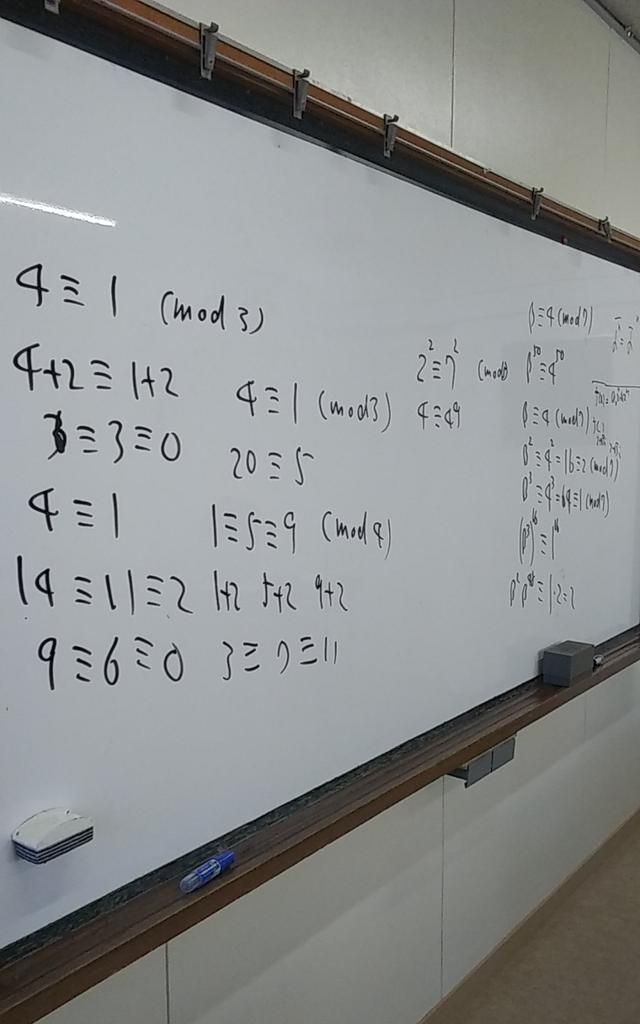 4 ≡ 1 (mod 3)
4+2 ≡ 1+2
≡ 3 ≡ 0
4 ≡ 1
14 ≡ 11 ≡ 2
9 ≡ 6 ≡ 0
4 ≡ 1 (mod 3)
20 ≡ 5
1 ≡ 5 ≡ 9 (mod 4)
1+2 5+2 9+2
3 ≡ 7 ≡ 11
2² ≡ 7² (mod
4 ≡ 49
p ≡ 4 (mod 7)
p⁵⁰ ≡ 4⁵⁰
p ≡ 4 (mod 7)
p² ≡ 4² = 16 ≡ 2 (mod 7)
p³ ≡ 4³ = 64 ≡ 1 (mod 7)
(p³)¹⁶ ≡ 1¹⁶
p² p⁴⁸ ≡ 1·2 = 2